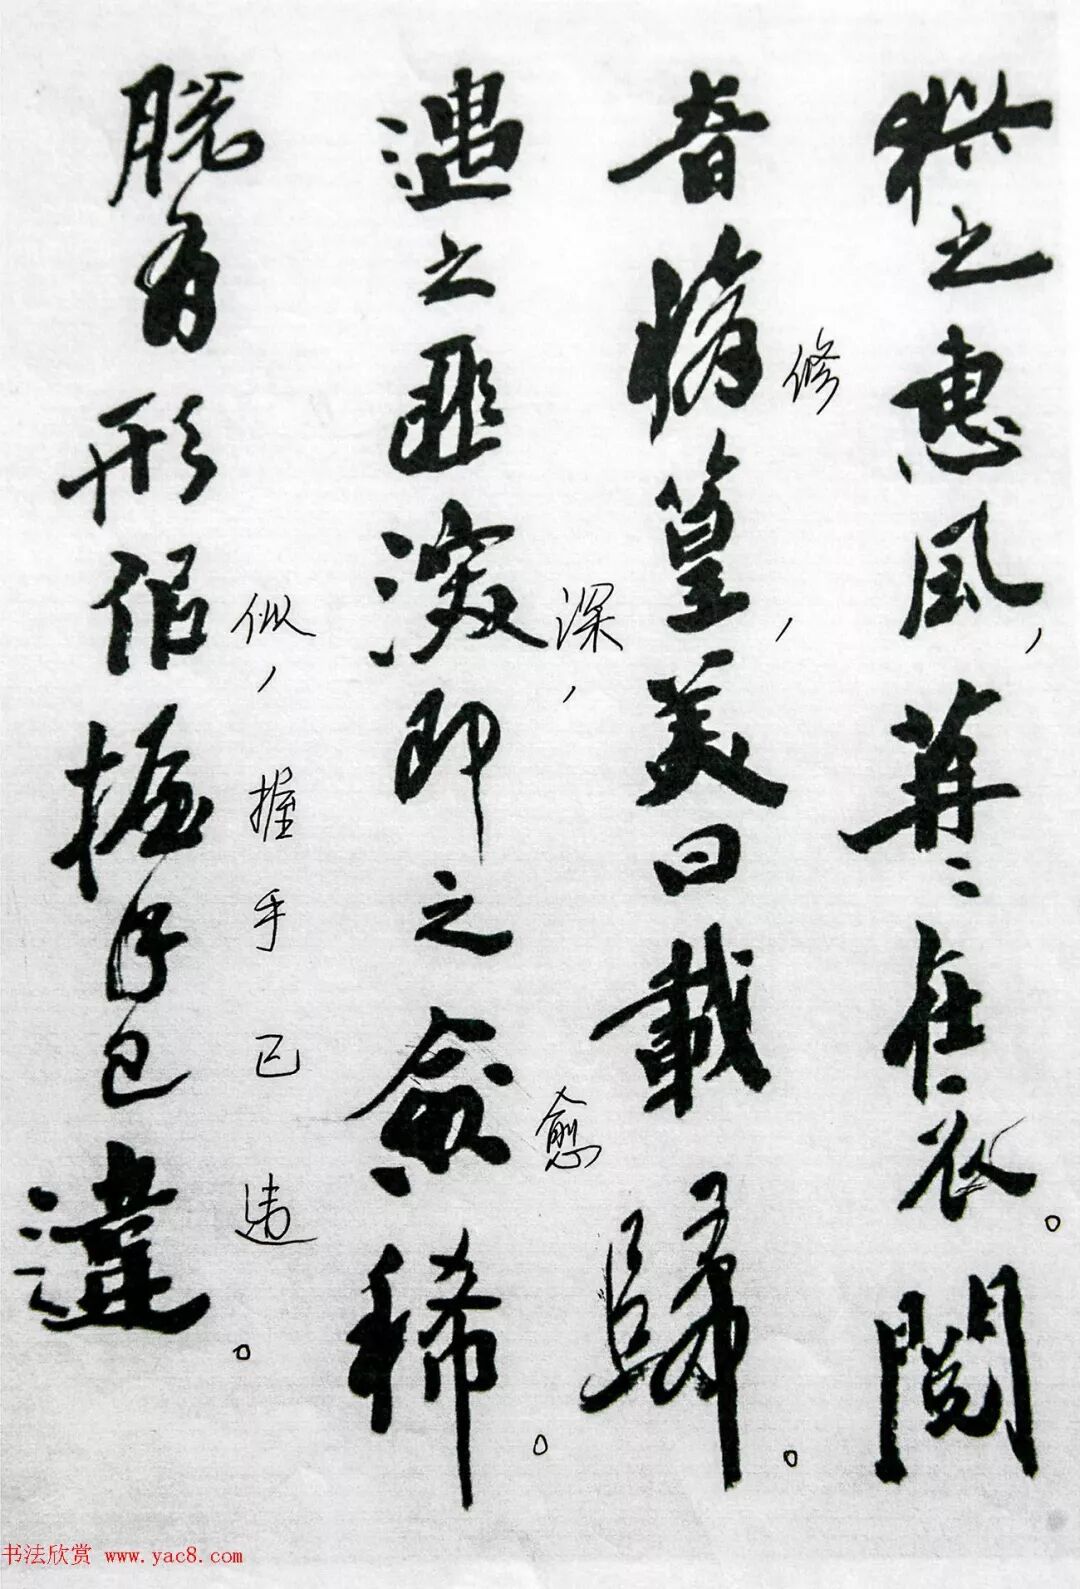 猶之惠風，苒〻在衣。閱
音脩篁，美曰載歸。
修
遇之匪深，即之愈稀。
深
愈
脱有形佀，握手已違。
似
握手已违
书法欣赏 www.yac8.com